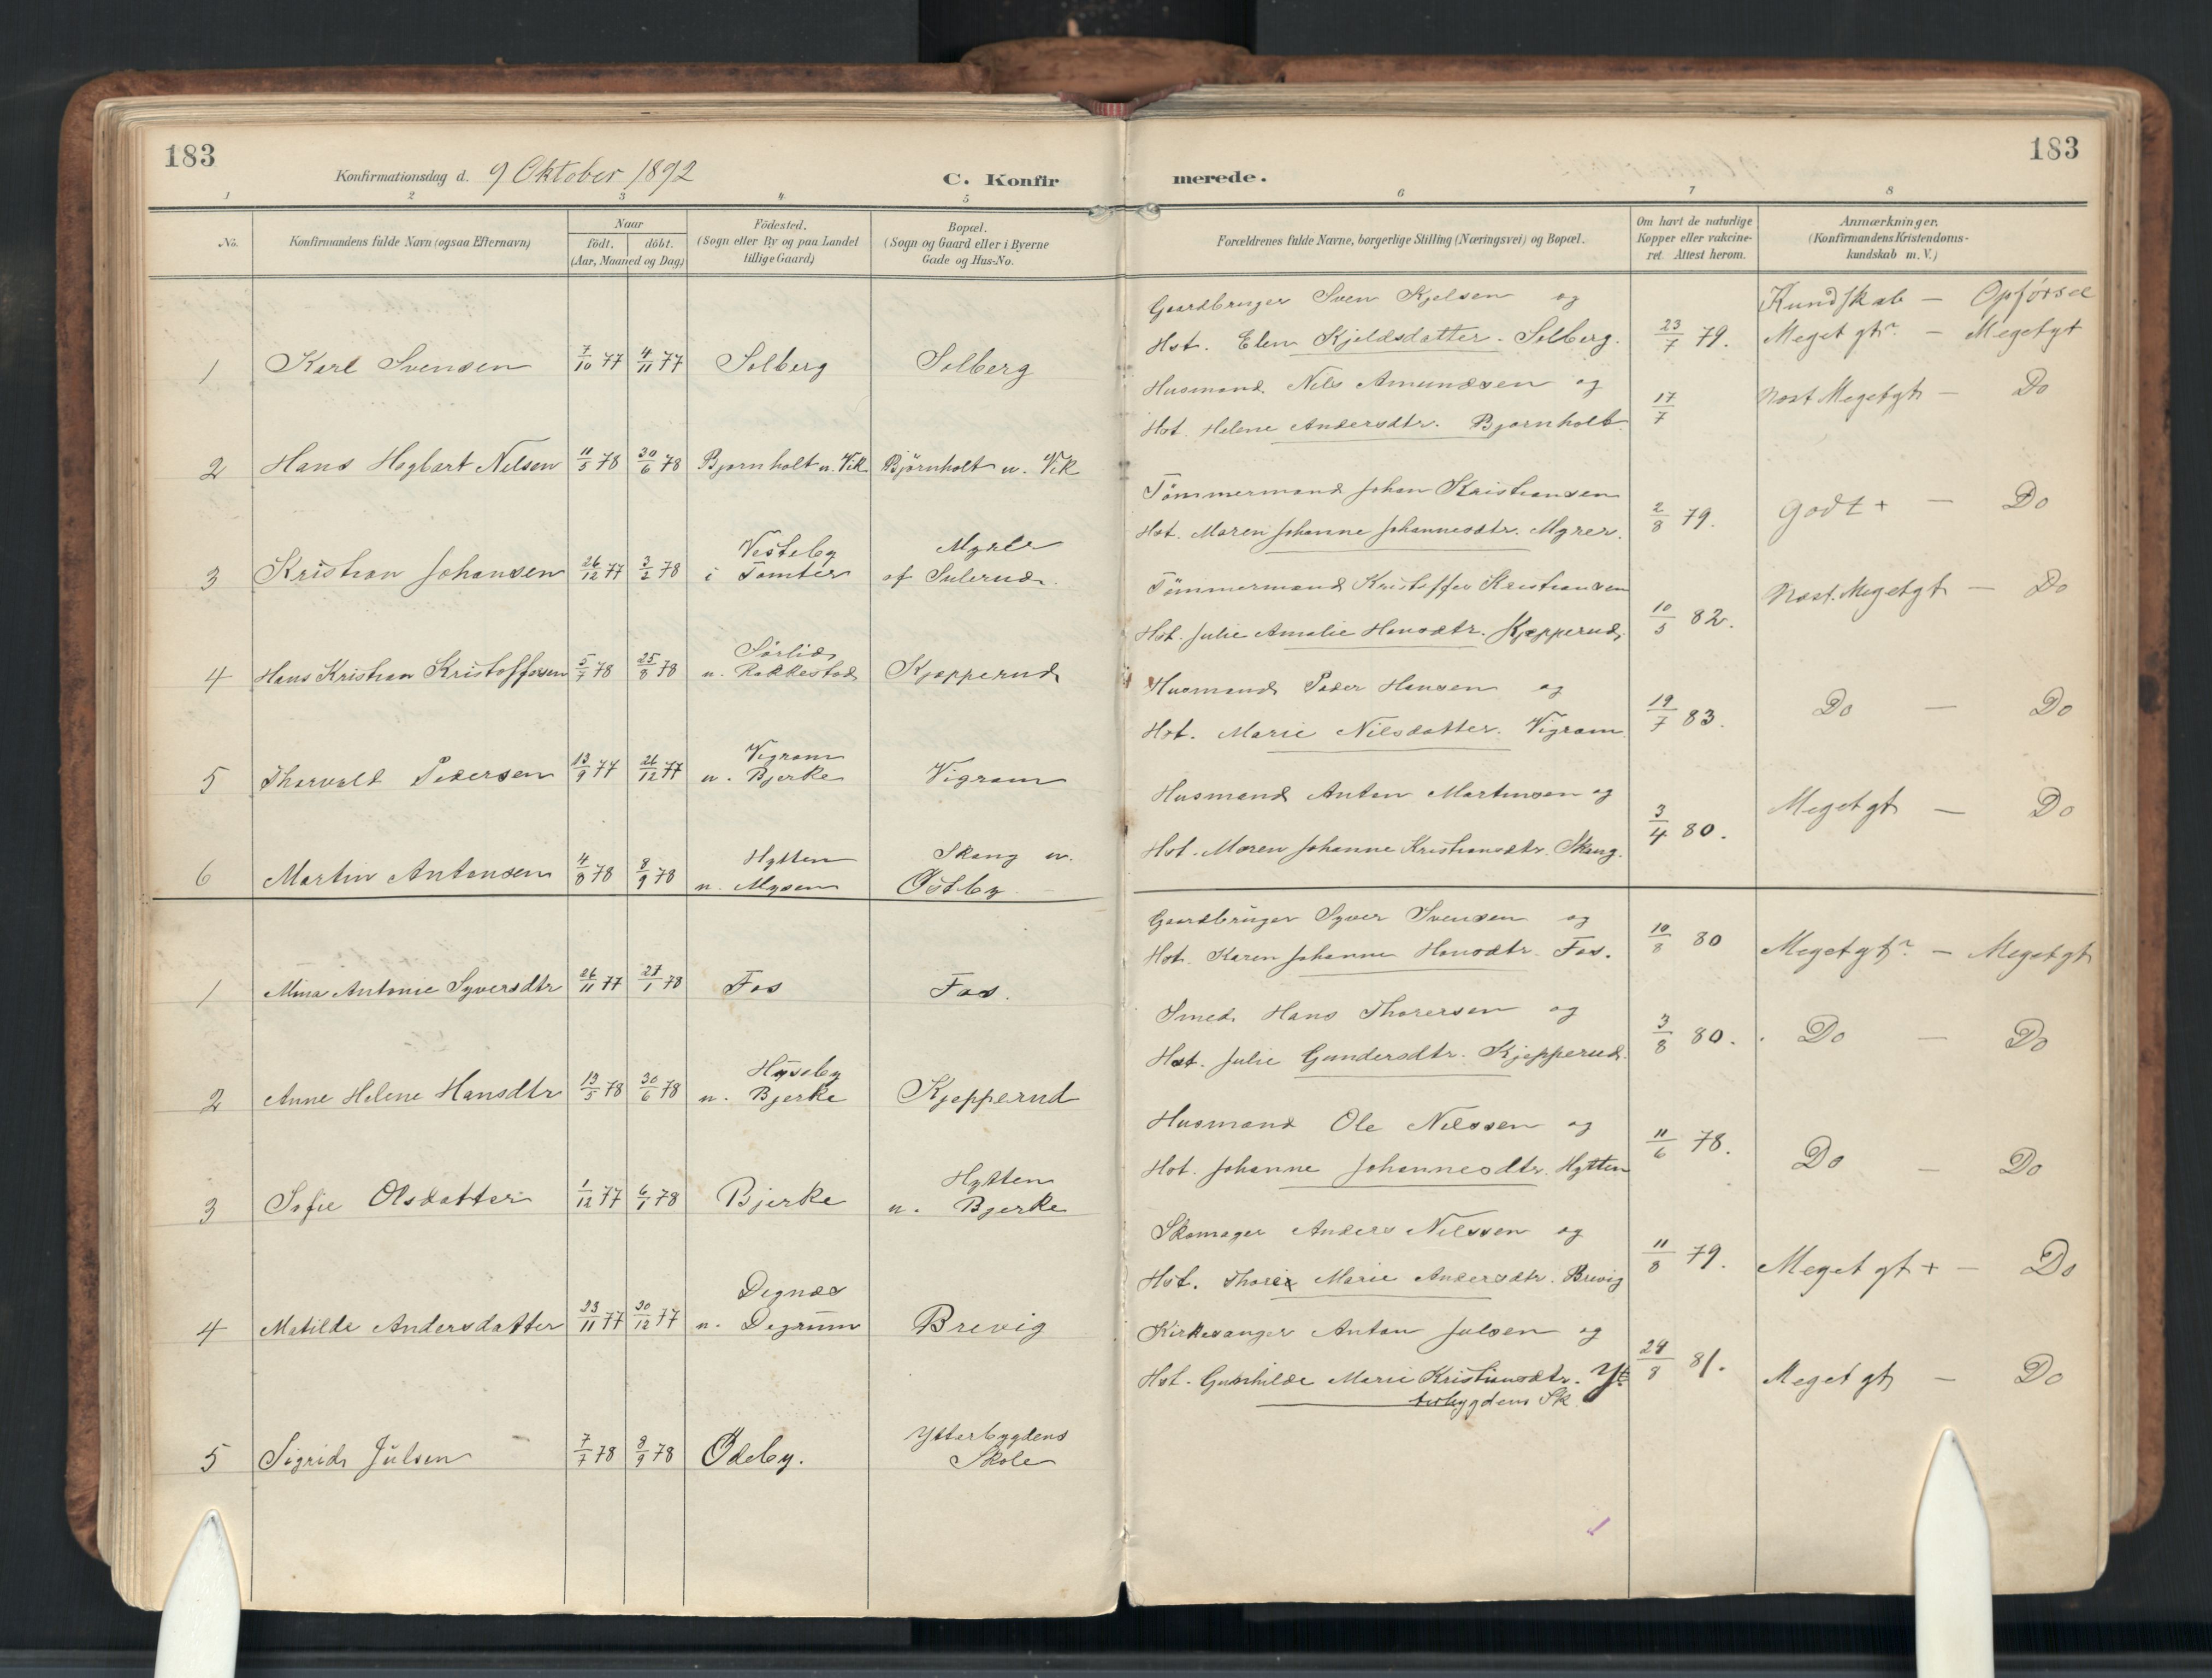 183
Konfirmationsdag d. 9 Oktober 1892
C. Konfir
1 2 3 4 5
No.
Konfirmandens fulde Navn (ogsaa Efternavn)
Naar
födt. döbt.
(Aar, Maaned og Dag)
Födested.
(Sogn eller By og paa Landet
tillige Gaard)
Bopæl.
(Sogn og Gaard eller i Byerne
Gade og Hus-No.
1 Karl Svensen 7/10 77 4/11 77 Solberg Solberg
2 Hans Hagbart Nilsen 11/5 78 30/6 78 Bjørnholt u. Vik Bjørnholt u. Vik
Vesteby Myrer
3 Kristian Johansen 26/12 77 3/2 78 i Tomter af Sulerud.
Sørlid
4 Hans Kristian Kristoffersen 5/7 78 25/8 78 u. Rakkestad Kjepperud
Vigram
5 Thorvald Pedersen 13/9 77 26/12 77 u. Bjerke Vigram
Hytten Skaug u.
6 Martin Antonsen 4/8 78 8/9 78 u. Mysen Østby
1 Mina Antonie Syversdtr 26/11 77 27/1 78 Fos Fos.
Hyseby
2 Anne Helene Hansdtr 13/5 78 30/6 78 u. Bjerke Kjepperud
Hytten
3 Sofie Olsdatter 1/12 77 6/1 78 Bjerke u. Bjerke
Degnes
4 Matilde Andersdatter 23/11 77 30/12 77 u. Degrum Brevig
Ytterbygdens
5 Sigrid Julsen 7/7 78 8/9 78 Ødeby. Skole
183
merede.
6 7 8
Forældrenes fulde Navne, borgerlige Stilling (Næringsvei) og Bopæl.
Om havt de naturlige
Kopper eller vakcine-
ret. Attest herom.
Anmærkninger.
(Konfirmandens Kristendoms-
kundskab m. V.)
Gaardbruger Sven Kjelsen og Kundskab — Opførsel
Hst. Elen Kjeldsdatter. Solberg. 23/7 79. Meget gt — Meget gt
Husmand Nils Amundsen og
Hst. Helene Andersdtr. Bjørnholt 17/7 Næst Meget gt — Do
Tømmermand Johan Kristiansen
Hst. Maren Johanne Johannesdtr. Myrer. 2/8 79. Godt + — Do
Tømmermand Kristoffer Kristiansen
Hst. Julie Amalie Hansdtr. Kjepperud. 10/5 82. Næst. Meget gt — Do
Husmand Peder Hansen og
Hst. Marie Nilsdatter. Vigram 19/7 83. Do — Do
Husmand Anton Martinsen og
Hst. Maren Johanne Kristiansdtr. Skaug. 3/4 80. Meget gt — Do
Gaardbruger Syver Svensen og
Hst. Karen Johanne Hansdtr. Fos. 10/8 80 Meget gt — Meget gt
Smed Hans Thorersen og
Hst. Julie Gundersdtr. Kjepperud. 3/8 80. Do — Do
Husmand Ole Nilssen og
Hst. Johanne Johannesdtr. Hytten 11/6 78. Do — Do
Skomager Anders Nilssen og
Hst. Marie Andersdtr. Brevig 11/8 79. Meget gt + — Do
Kirkesanger Anton Julsen og
Hst. Gunhilde Marie Kristiansdtr. Yt 8 81. Meget gt — Do
terbygdens Sk.